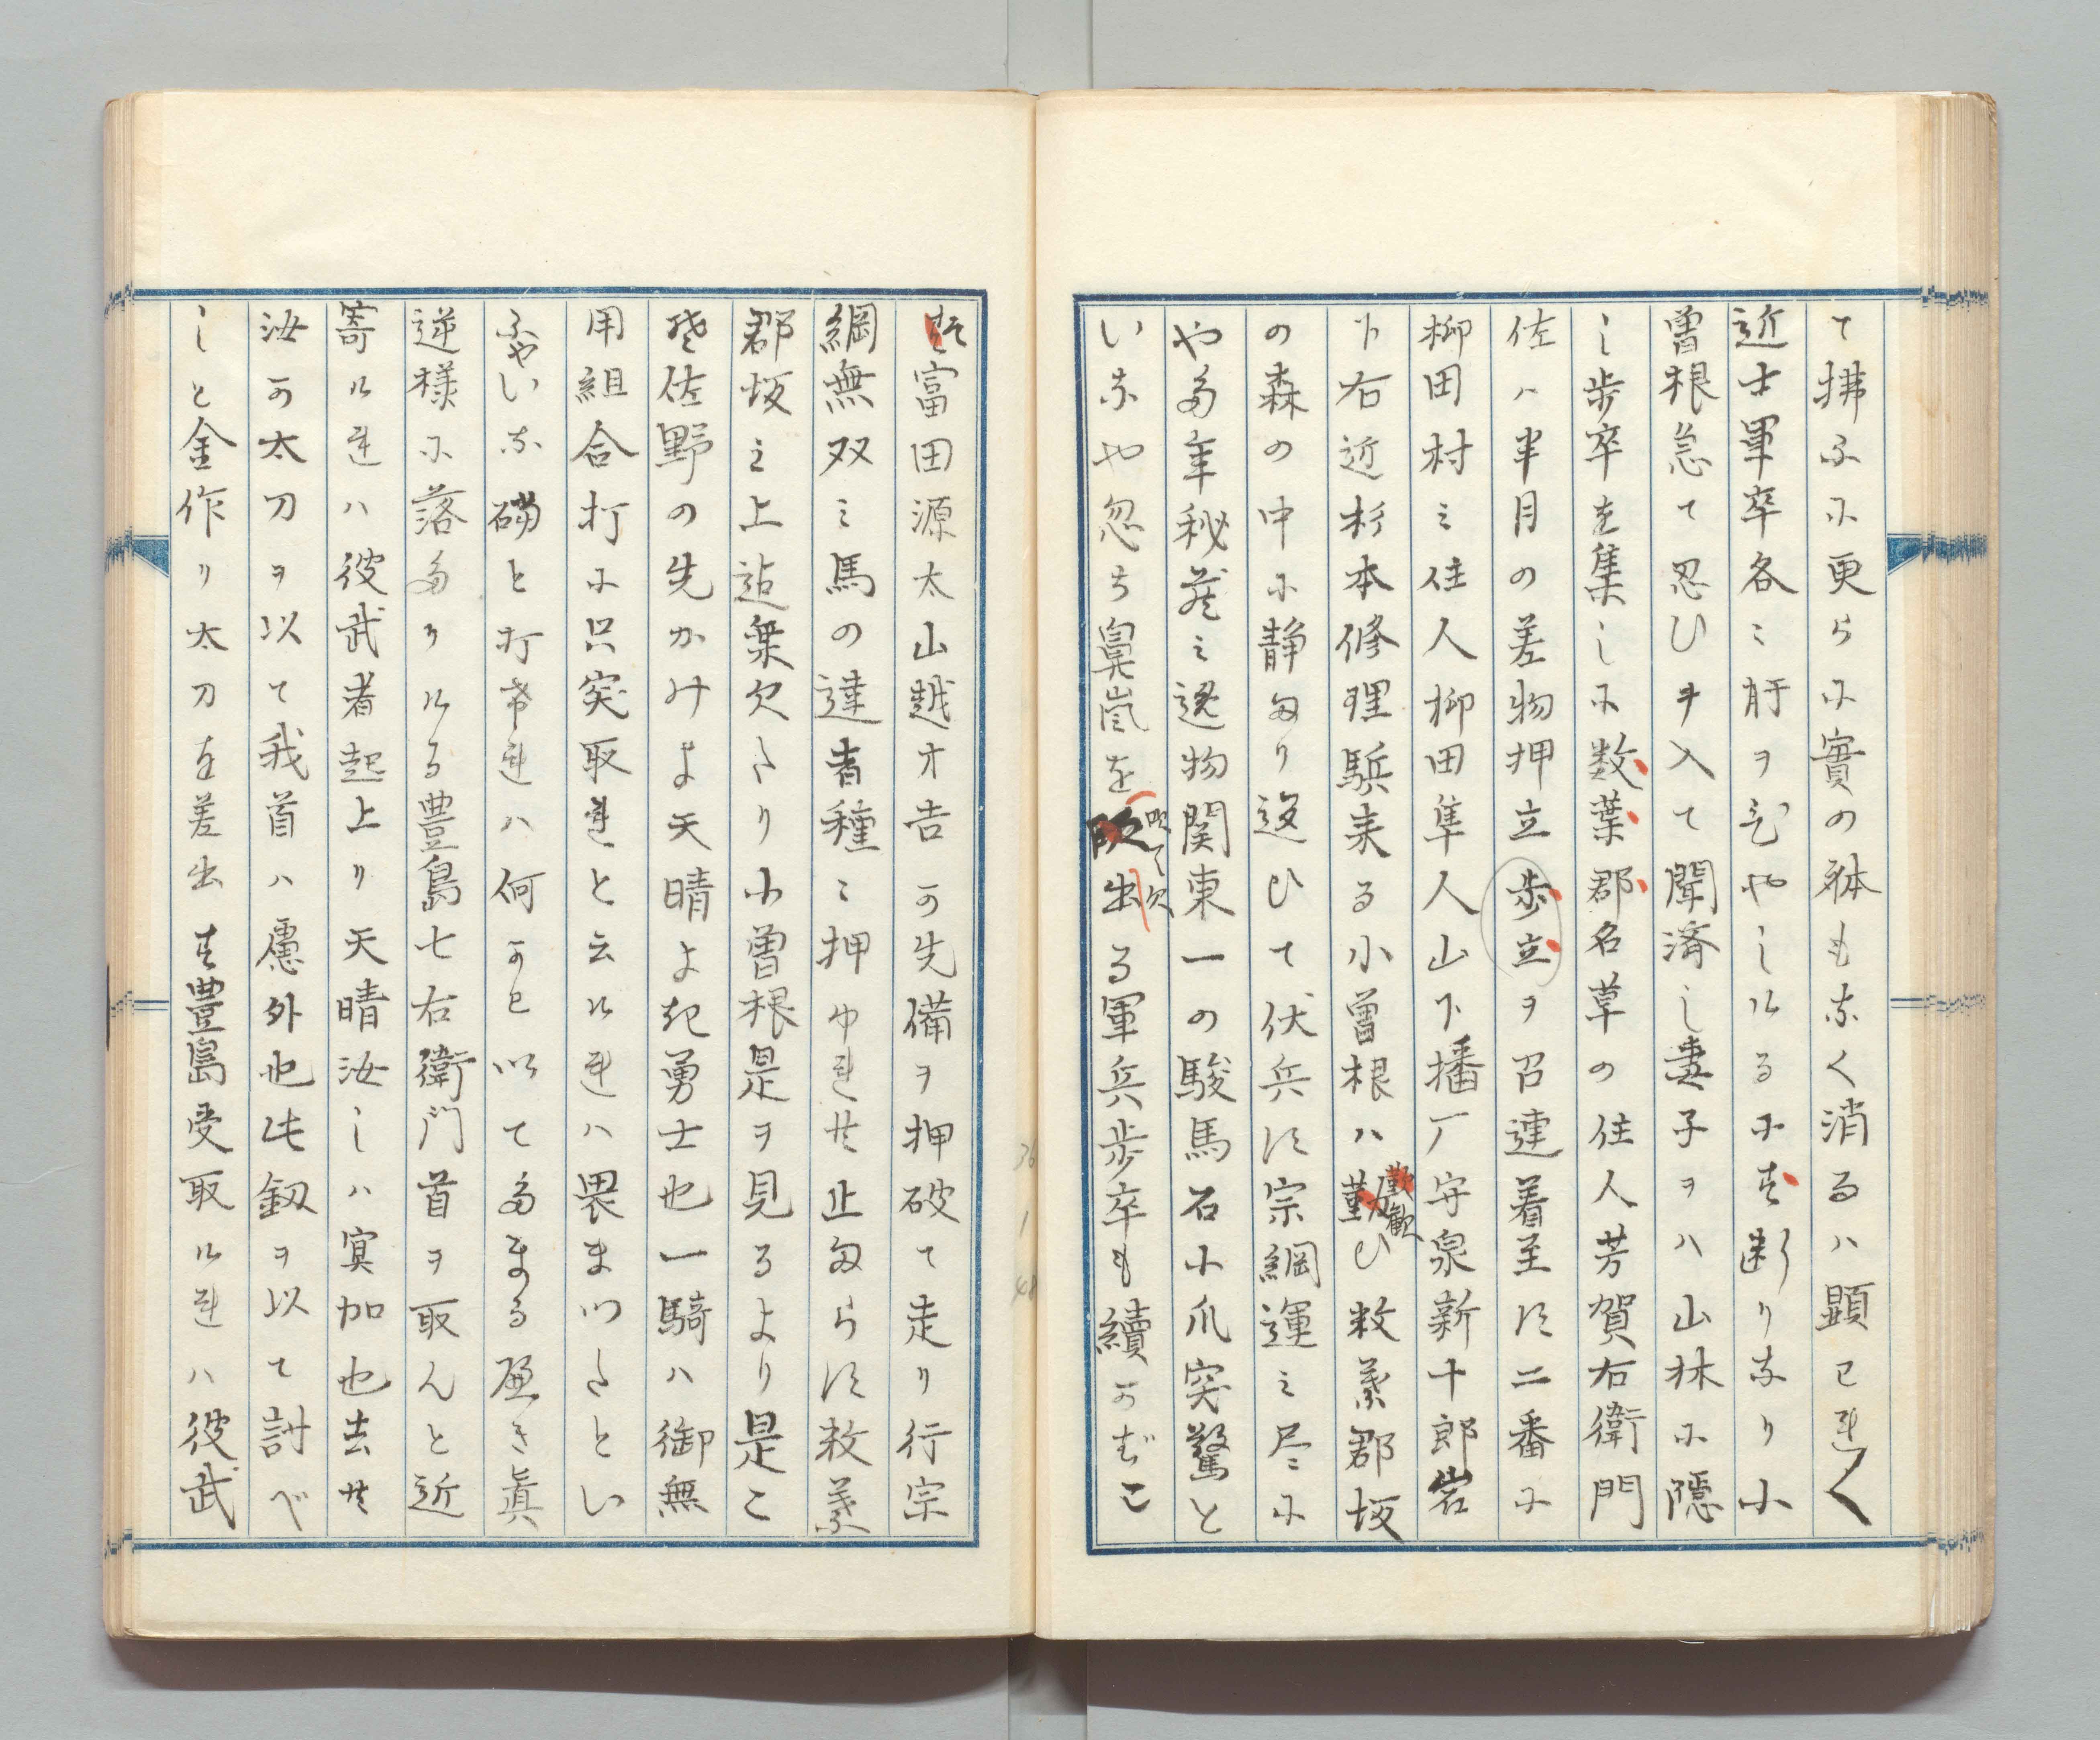 て拂ふに更らに實の躰もなく消るハ顕ワれく
近士軍卒各〻肝ヲひやしけるにぞ断りなり小
曽根急て忍ひヰ入て聞済し妻子ヲハ山林に隠
し歩卒を集しに数葉郡名草の住人芳賀右衛門
佐ハ半月の差物押立歩立ヲ召連着至す二番に
柳田村ミ住人柳田隼人山下播广守泉新十郎岩
下右近杉本修理騒来る小曽根ハ勤ひ数葉郡坂
歓歓
の森の中に静より迯ひて伏兵す宗綱運ミ尽に
や多年秘蔵ミ迯物関東一の駿馬石小爪突驚と
いなや忽ち鼻嵐を 出る軍兵歩卒も續かずこ
吹て欠
ぞ冨田源太山越才吉か先備ヲ押破て走り行宗
綱無双ミ馬の達者種〻押ゆれ共止めらす数葉
郡坂之上迠乗欠たり小曽根是ヲ見るより是こ
そ佐野の先かけよ天晴よき勇士也一騎ハ御無
用組合打に只突取れと云けれハ畏まつたとい
ふやいな礑と打きれハ何かハ以てたまる
逆様に落たりける豊島七右衛門首ヲ取んと近
寄けれハ彼武者起上り天晴汝しハ冥加也去共
汝か太刀ヲ以て我首ハ慮外也此釼ヲ以て討べ
しと金作り太刀を差出す豊島受取けれハ彼武